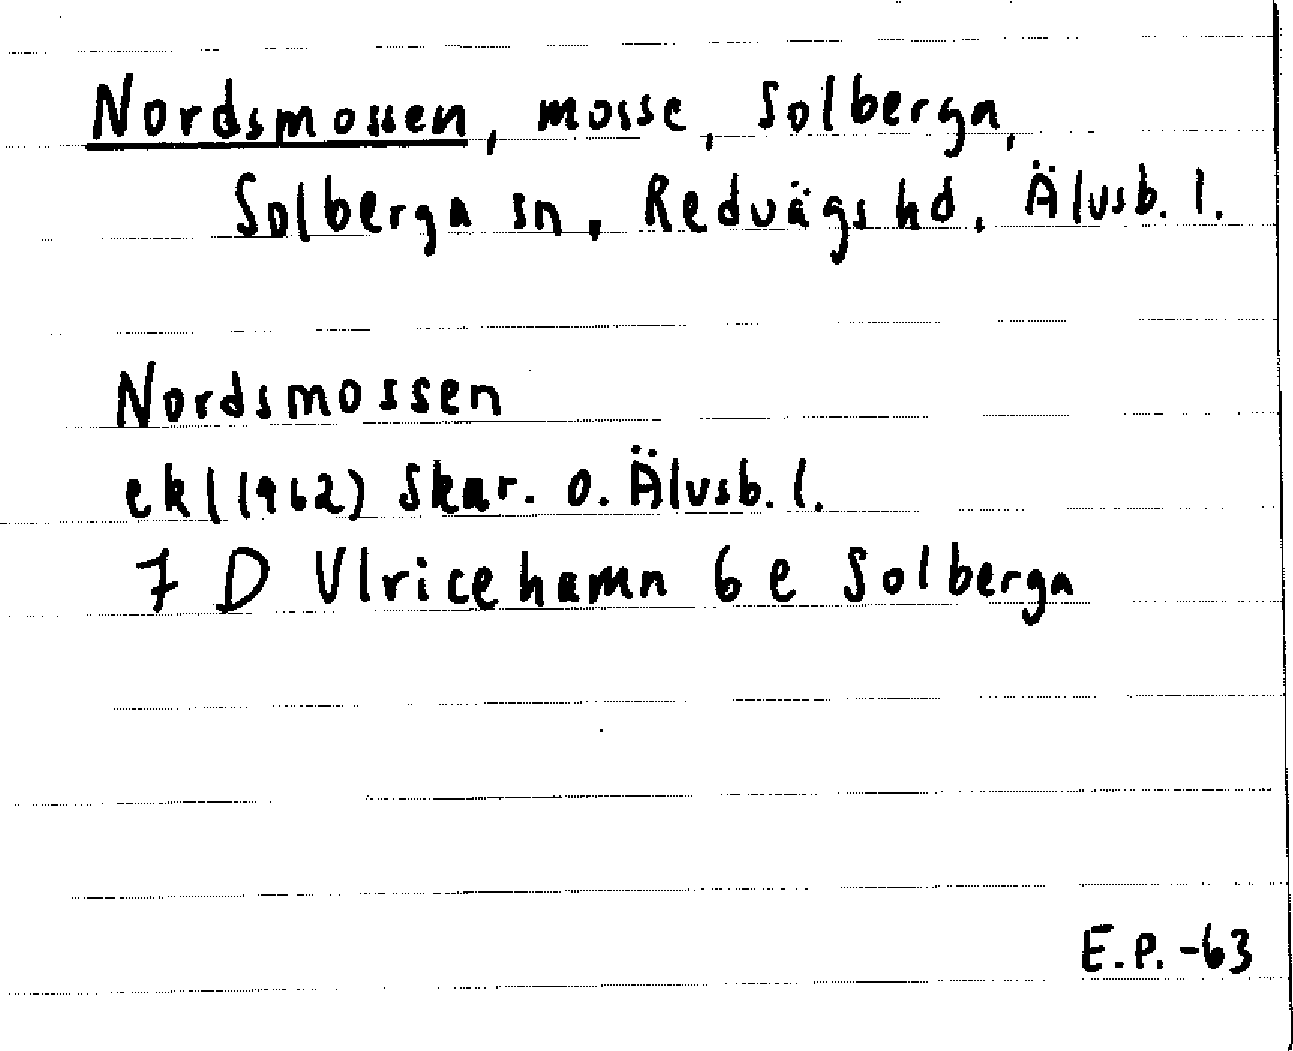 Nordsmossen, mosse, Solberga,
Solberga sn, Redvägs hd, Älvsb. l.
Nordsmossen
ekl (1962) Skar. o. Älvsb. l.
7 D Ulricehamn 6 e Solberga
E.P. -63